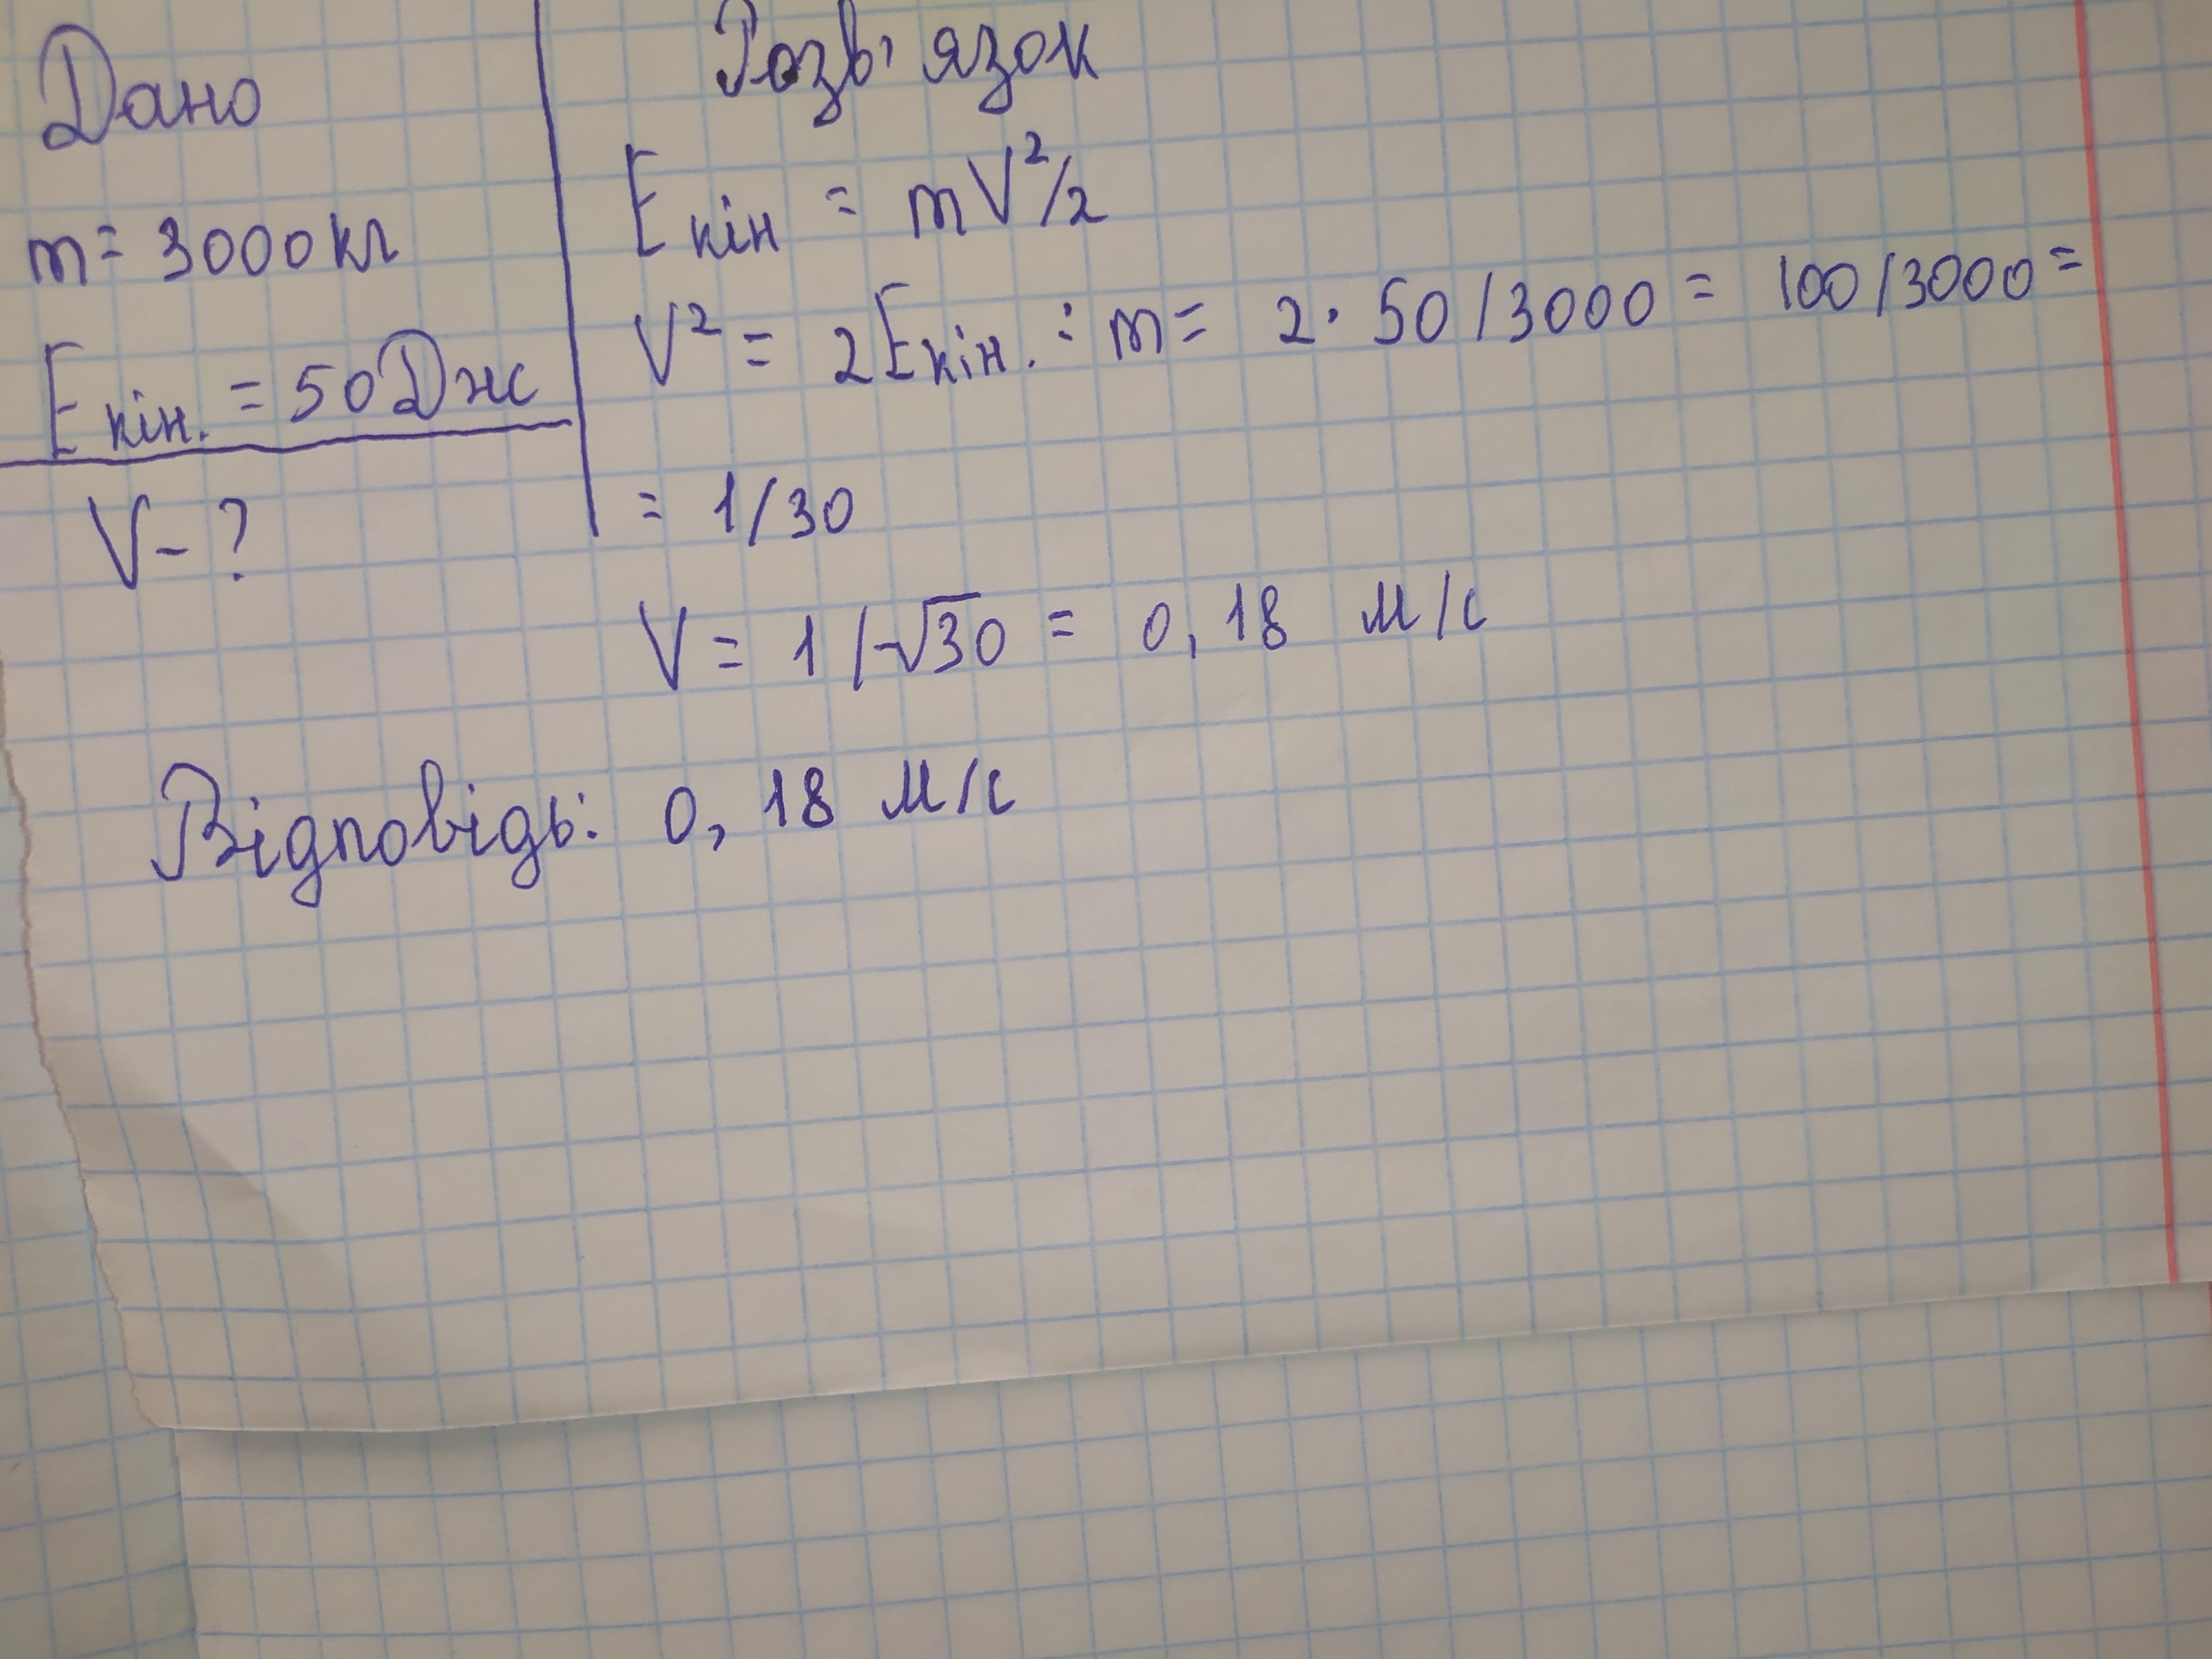 Дано
m = 3000 кг
Eкін. = 50 Дж
V - ?
Розв'язок
Eкін = mV²/2
V² = 2Eкін. : m = 2 · 50 / 3000 = 100 / 3000 =
= 1/30
V = 1/√30 = 0,18 м/с
Відповідь: 0,18 м/с